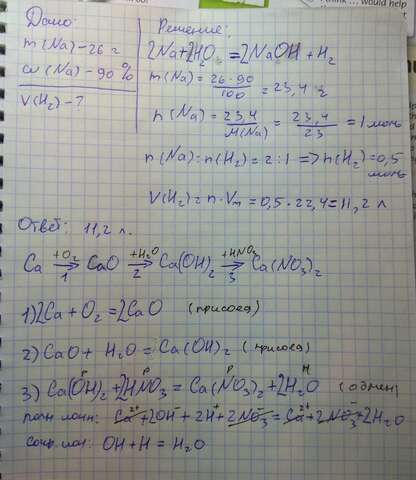 ... would help
Дано:
m(Na)-26 г
ω(Na)-90%
V(H₂)-?
Решение:
2Na+2H₂O=2NaOH+H₂
m(Na)=26·90/100=23,4 г
n(Na)=23,4/M(Na)=23,4/23=1 моль
n(Na):n(H₂)=2:1=>n(H₂)=0,5
моль
V(H₂)=n·Vm=0,5·22,4=11,2 л
Ответ: 11,2 л.
Ca +O₂→1 CaO +H₂O→2 Ca(OH)₂ +HNO₃→3 Ca(NO₃)₂
1)2Ca+O₂=2CaO (присоед)
2)CaO+H₂O=Ca(OH)₂ (присоед)
P P P H
3)Ca(OH)₂+2HNO₃=Ca(NO₃)₂+2H₂O (обмен)
полн ионн: Ca²⁺+2OH⁻+2H⁺+2NO₃⁻=Ca²⁺+2NO₃⁻+2H₂O
сокр ион: OH+H=H₂O